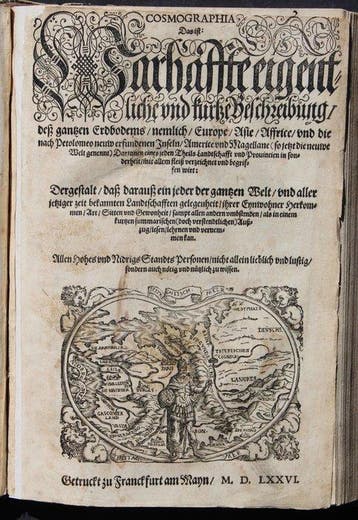 COSMOGRAPHIA
Das ist:
Warhaffte eigent-
liche vnd kurtze Beschreibung/
deß gantzen Erdbodems/nemlich/Europe/Asie/Affrice/vnd die
nach Ptolomeo neuw erfundenen Inseln/Americe vnd Magellane (so jetzt die neuwe
Welt genennt) Darinnen eines jeden Theils Landtschafft vnd Prouincien in son-
derheit/mit allem fleiß verzeichnet vnd begrif-
fen wirt:
Dergestalt/daß darauß ein jeder der gantzen Welt/vnd aller
jetziger zeit bekannten Landtschafften gelegenheit/jhrer Eynwohner Herkom-
men/Art/Sitten vnd Gewonheit/sampt allen andern vmbstenden/als in einem
kurtzen summarischen (doch verstendtlichen) Auß-
zug/lesen/lehrnen vnd vernem-
men kan.
Allen Hohes vnd Nidrigs Standts Personen/nicht allein lieblich vnd lustig/
sondern auch nötig vnd nützlich zu wissen.
DEVSCHL
GASCONIER
LAND
Getruckt zu Franckfurt am Mayn/ M. D. LXXVI.